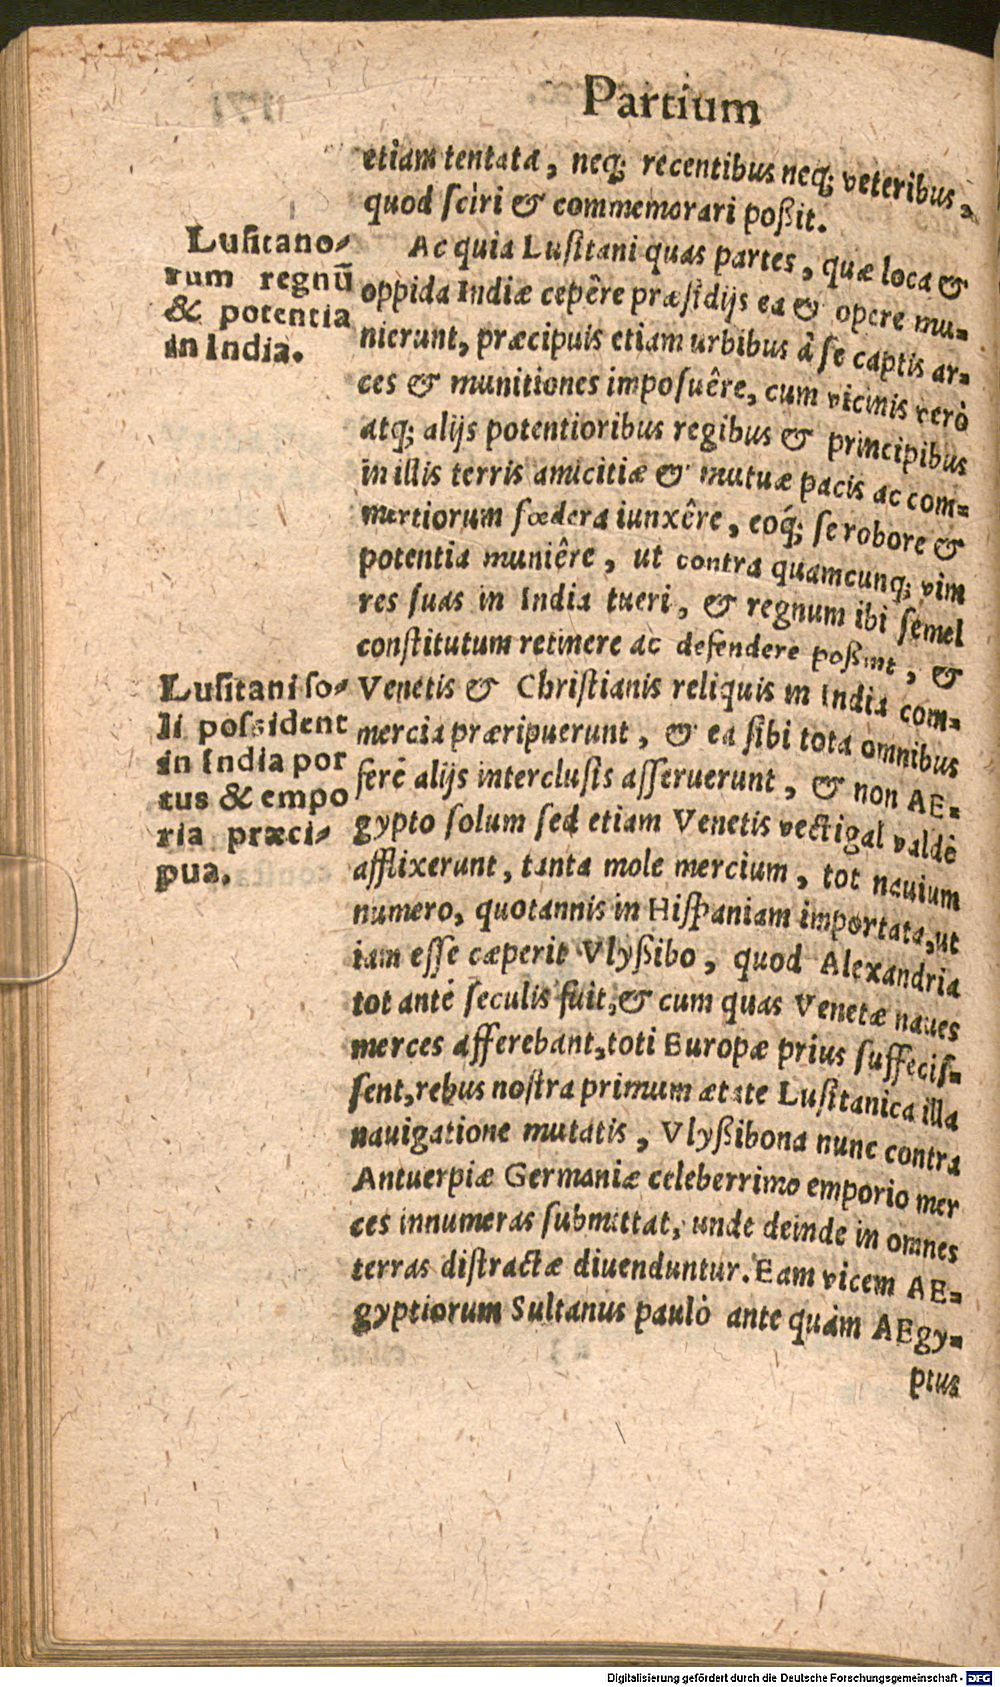 Partium
etiam tentata, neq; recentibus neq; veteribus,
quod sciri & commemorari poßit.
Lusitano-
rum regnū
& potentia
in India.
Ac quia Lusitani quas partes, quæ loca &
oppida Indiæ cepêre præsidijs ea & opere mu-
nierunt, præcipuis etiam urbibus à se captis ar-
ces & munitiones imposuêre, cum vicinis verò
atq; alijs potentioribus regibus & principibus
in illis terris amicitiæ & mutuæ pacis ac com-
mertiorum fœdera iunxêre, eoq́; se robore &
potentia muniêre, ut contra quamcunq; vim
res suas in India tueri, & regnum ibi semel
constitutum retinere ac defendere poßint, &
Lusitani so-
li possident
in India por
tus & empo
ria præci-
pua.
Venetis & Christianis reliquis in India com-
mercia præripuerunt, & ea sibi tota omnibus
ferè alijs interclusis asseruerunt, & non AE-
gypto solum sed etiam Venetis vectigal valdè
afflixerunt, tanta mole mercium, tot nauium
numero, quotannis in Hispaniam importata, ut
iam esse cæperit Vlyßibo, quod Alexandria
tot antè seculis fuit, & cum quas Venetæ naues
merces afferebant, toti Europæ prius suffecis-
sent, rebus nostra primum ætate Lusitanica illa
nauigatione mutatis, Vlyßibona nunc contra
Antuerpiæ Germaniæ celeberrimo emporio mer
ces innumeras submittat, unde deinde in omnes
terras distractæ diuenduntur. Eam vicem AE-
gyptiorum Sultanus paulò ante quàm AEgy-
ptus
Digitalisierung gefördert durch die Deutsche Forschungsgemeinschaft - DFG